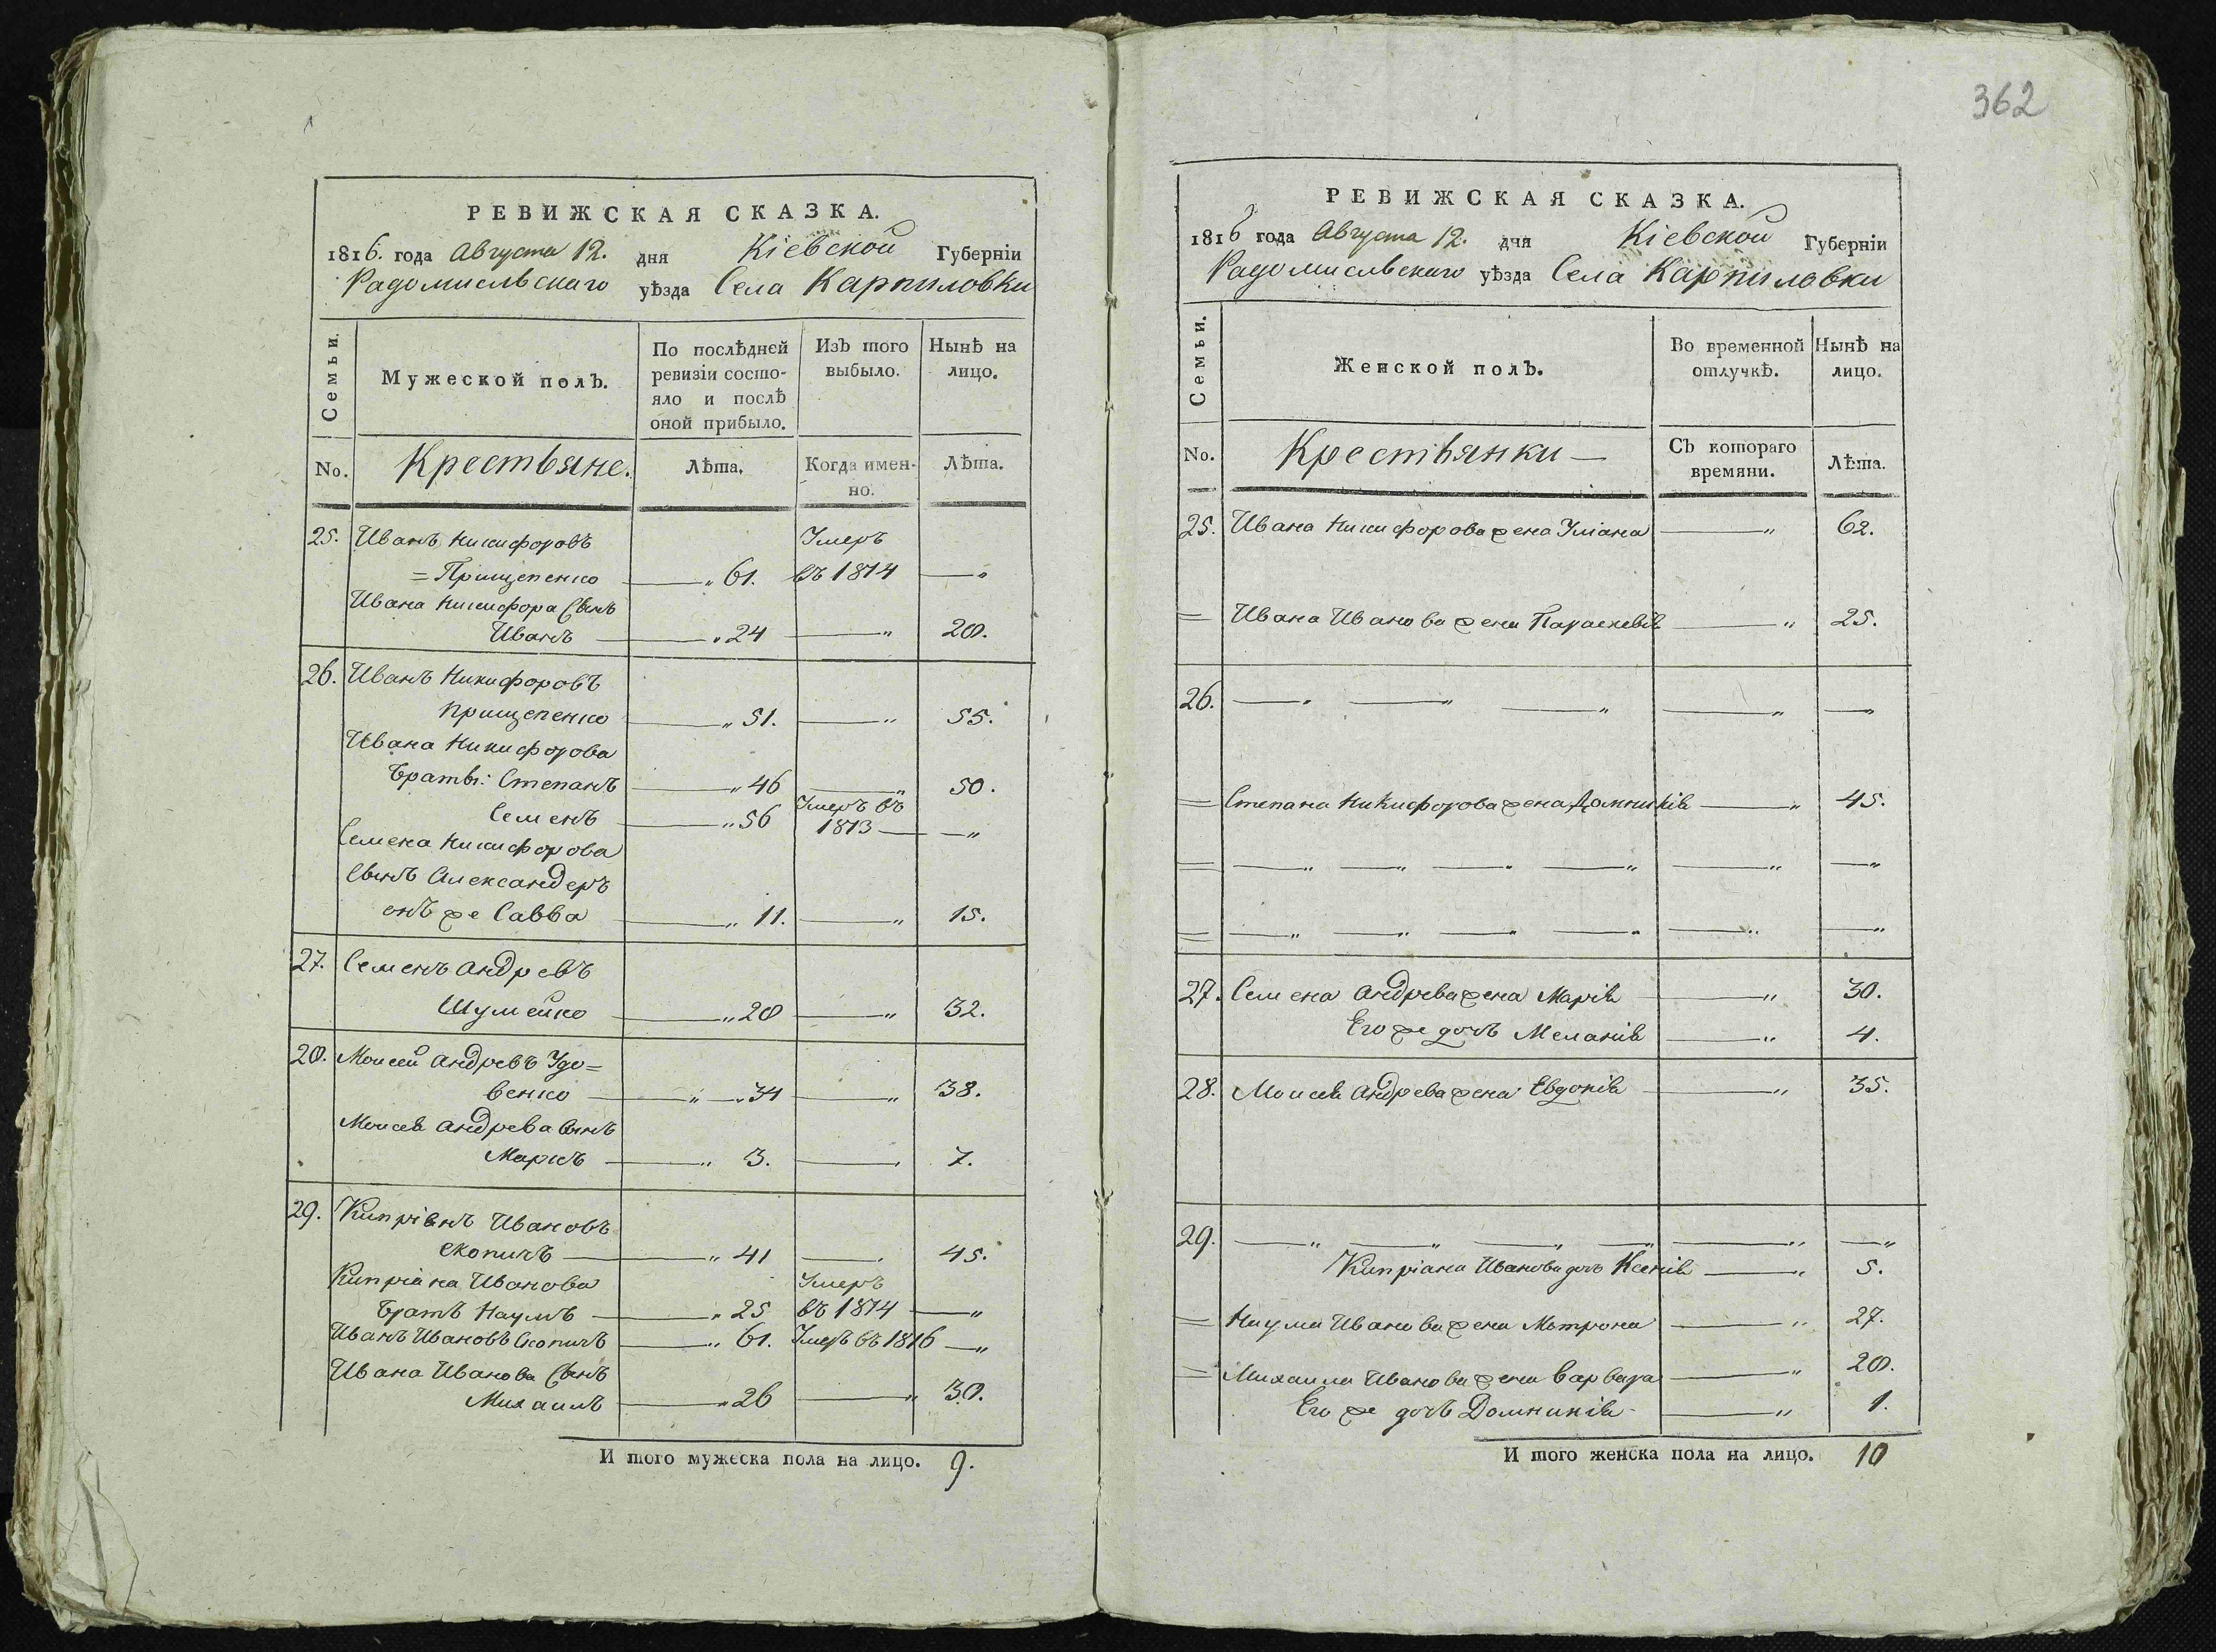 РЕВИЖСКАЯ СКАЗКА.
1816. года Августа 12. дня Кіевской Губерніи
Радомисльскаго уѣзда Села Карпиловки
Семьи.
Мужеской полъ.
По послѣдней ревизіи состояло и послѣ оной прибыло.
Изъ того выбыло.
Нынѣ на лицо.
No.
Крестьяне.
Лѣта.
Когда именно.
Лѣта.
25. Иванъ Никифоровъ Умеръ
= Прищепенко — „ 61. въ 1814 — „
Ивана Никифора Сынъ
Иванъ — „ 24 — „ 28.
26. Иванъ Никифоровъ
Прищепенко — „ 51. — „ 55.
Ивана Никифорова
Братьı: Степанъ — „ 46 — „ 50.
Семенъ — „ 56 Умеръ въ 1813 — — „
Семена Никифорова
Сынъ Александеръ
онъ же Савва — „ 11. — „ 15.
27. Семенъ Андревъ
Шумейко — „ 28 — „ 32.
28. Моисей Андревъ Удо=
венко — „ — „ 34 — „ 38.
Моисея Андрева Сынъ
Маркъ — „ 3. — „ 7.
29. Кипріянъ Ивановъ
Скопичъ — „ 41 — „ 45.
Кипріана Иванова Умеръ
Братъ Наумъ — „ 25 въ 1814 — „
Иванъ Ивановъ Скопичъ — „ 61. Умеръ въ 1816 — „
Ивана Иванова Сынъ
Михаилъ — „ 26 — „ 30.
И того мужеска пола на лицо. 9.
362
РЕВИЖСКАЯ СКАЗКА.
1816 года Августа 12. дня Кіевской Губерніи
Радомисльскаго уѣзда Села Карпиловки
Семьи.
Женской полъ.
Во временной отлучкѣ.
Нынѣ на лицо.
No.
Крестьянки —
Съ котораго времяни.
Лѣта.
25. Ивана Никифорова жена Уліана — „ 62.
= Ивана Иванова жена Параскевія — „ 25.
26. — „ — „ — „ — „ — „
= Степана Никифорова жена Домникія — „ 45.
= — „ — „ — „ — „ — „ — „
= — „ — „ — „ — „ — „ — „
27. Семена Андрева жена Марія — „ 30.
Его же дочь Меланія — „ 4.
28. Моисея Андрева жена Евдокія — „ 35.
29. — „ — „ — „ — „ — „ — „
Кипріана Иванова дочь Ксенія — „ 5.
= Наума Иванова жена Матрона — „ 27.
= Михаила Иванова жена Варвара — „ 28.
Его же дочь Домникія — „ 1.
И того женска пола на лицо. 10